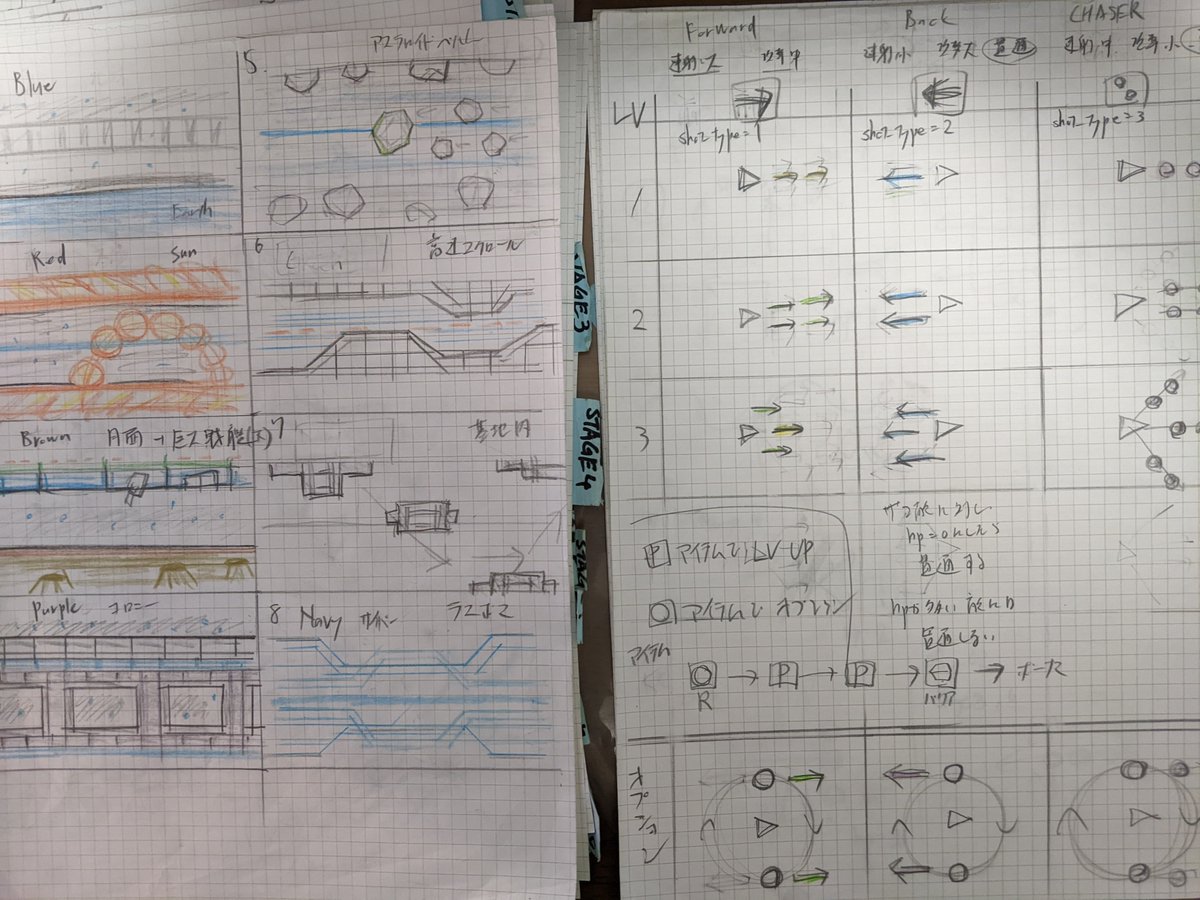 Blue
Earth
5.
アステロイドベルト
Red
Sun
6
高速スクロール
Brown
月面→巨大戦艦(区)
7
基地内
Purple
コロニー
8
Navy
ラスボス
STAGE3
STAGE4
Forward
Back
CHASER
連射 大
攻撃 中
連射 小
攻撃 大
貫通
連射 中
攻撃 小
LV
shot type=1
shot type=2
shot type=3
1
2
3
P アイテムでLV-UP
O アイテムで オプション
アイテム
R
P
P
バリア
ボーナス
ザコ敵に対し
hp=0にしたら
貫通する
hpが多い敵には
貫通しない
オプション